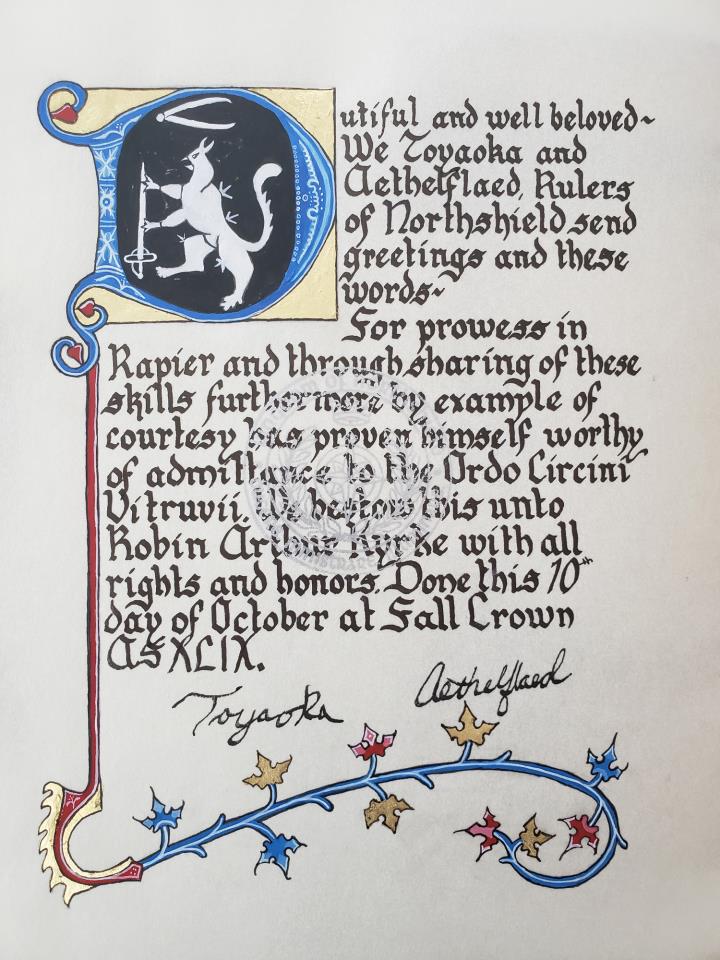 Dutiful and well beloved~
We Toyaoka and
Aethelflaed, Rulers
of Northshield send
greetings and these
words~
For prowess in
Rapier and through sharing of these
skills furthermore by example of
courtesy has proven himself worthy
of admittance to the Ordo Circini
Vitruvii. We bestow this unto
Robin Arthur Kyrke with all
rights and honors. Done this 10th
day of October at Fall Crown
AS XLIX.
Toyaoka Aethelflaed